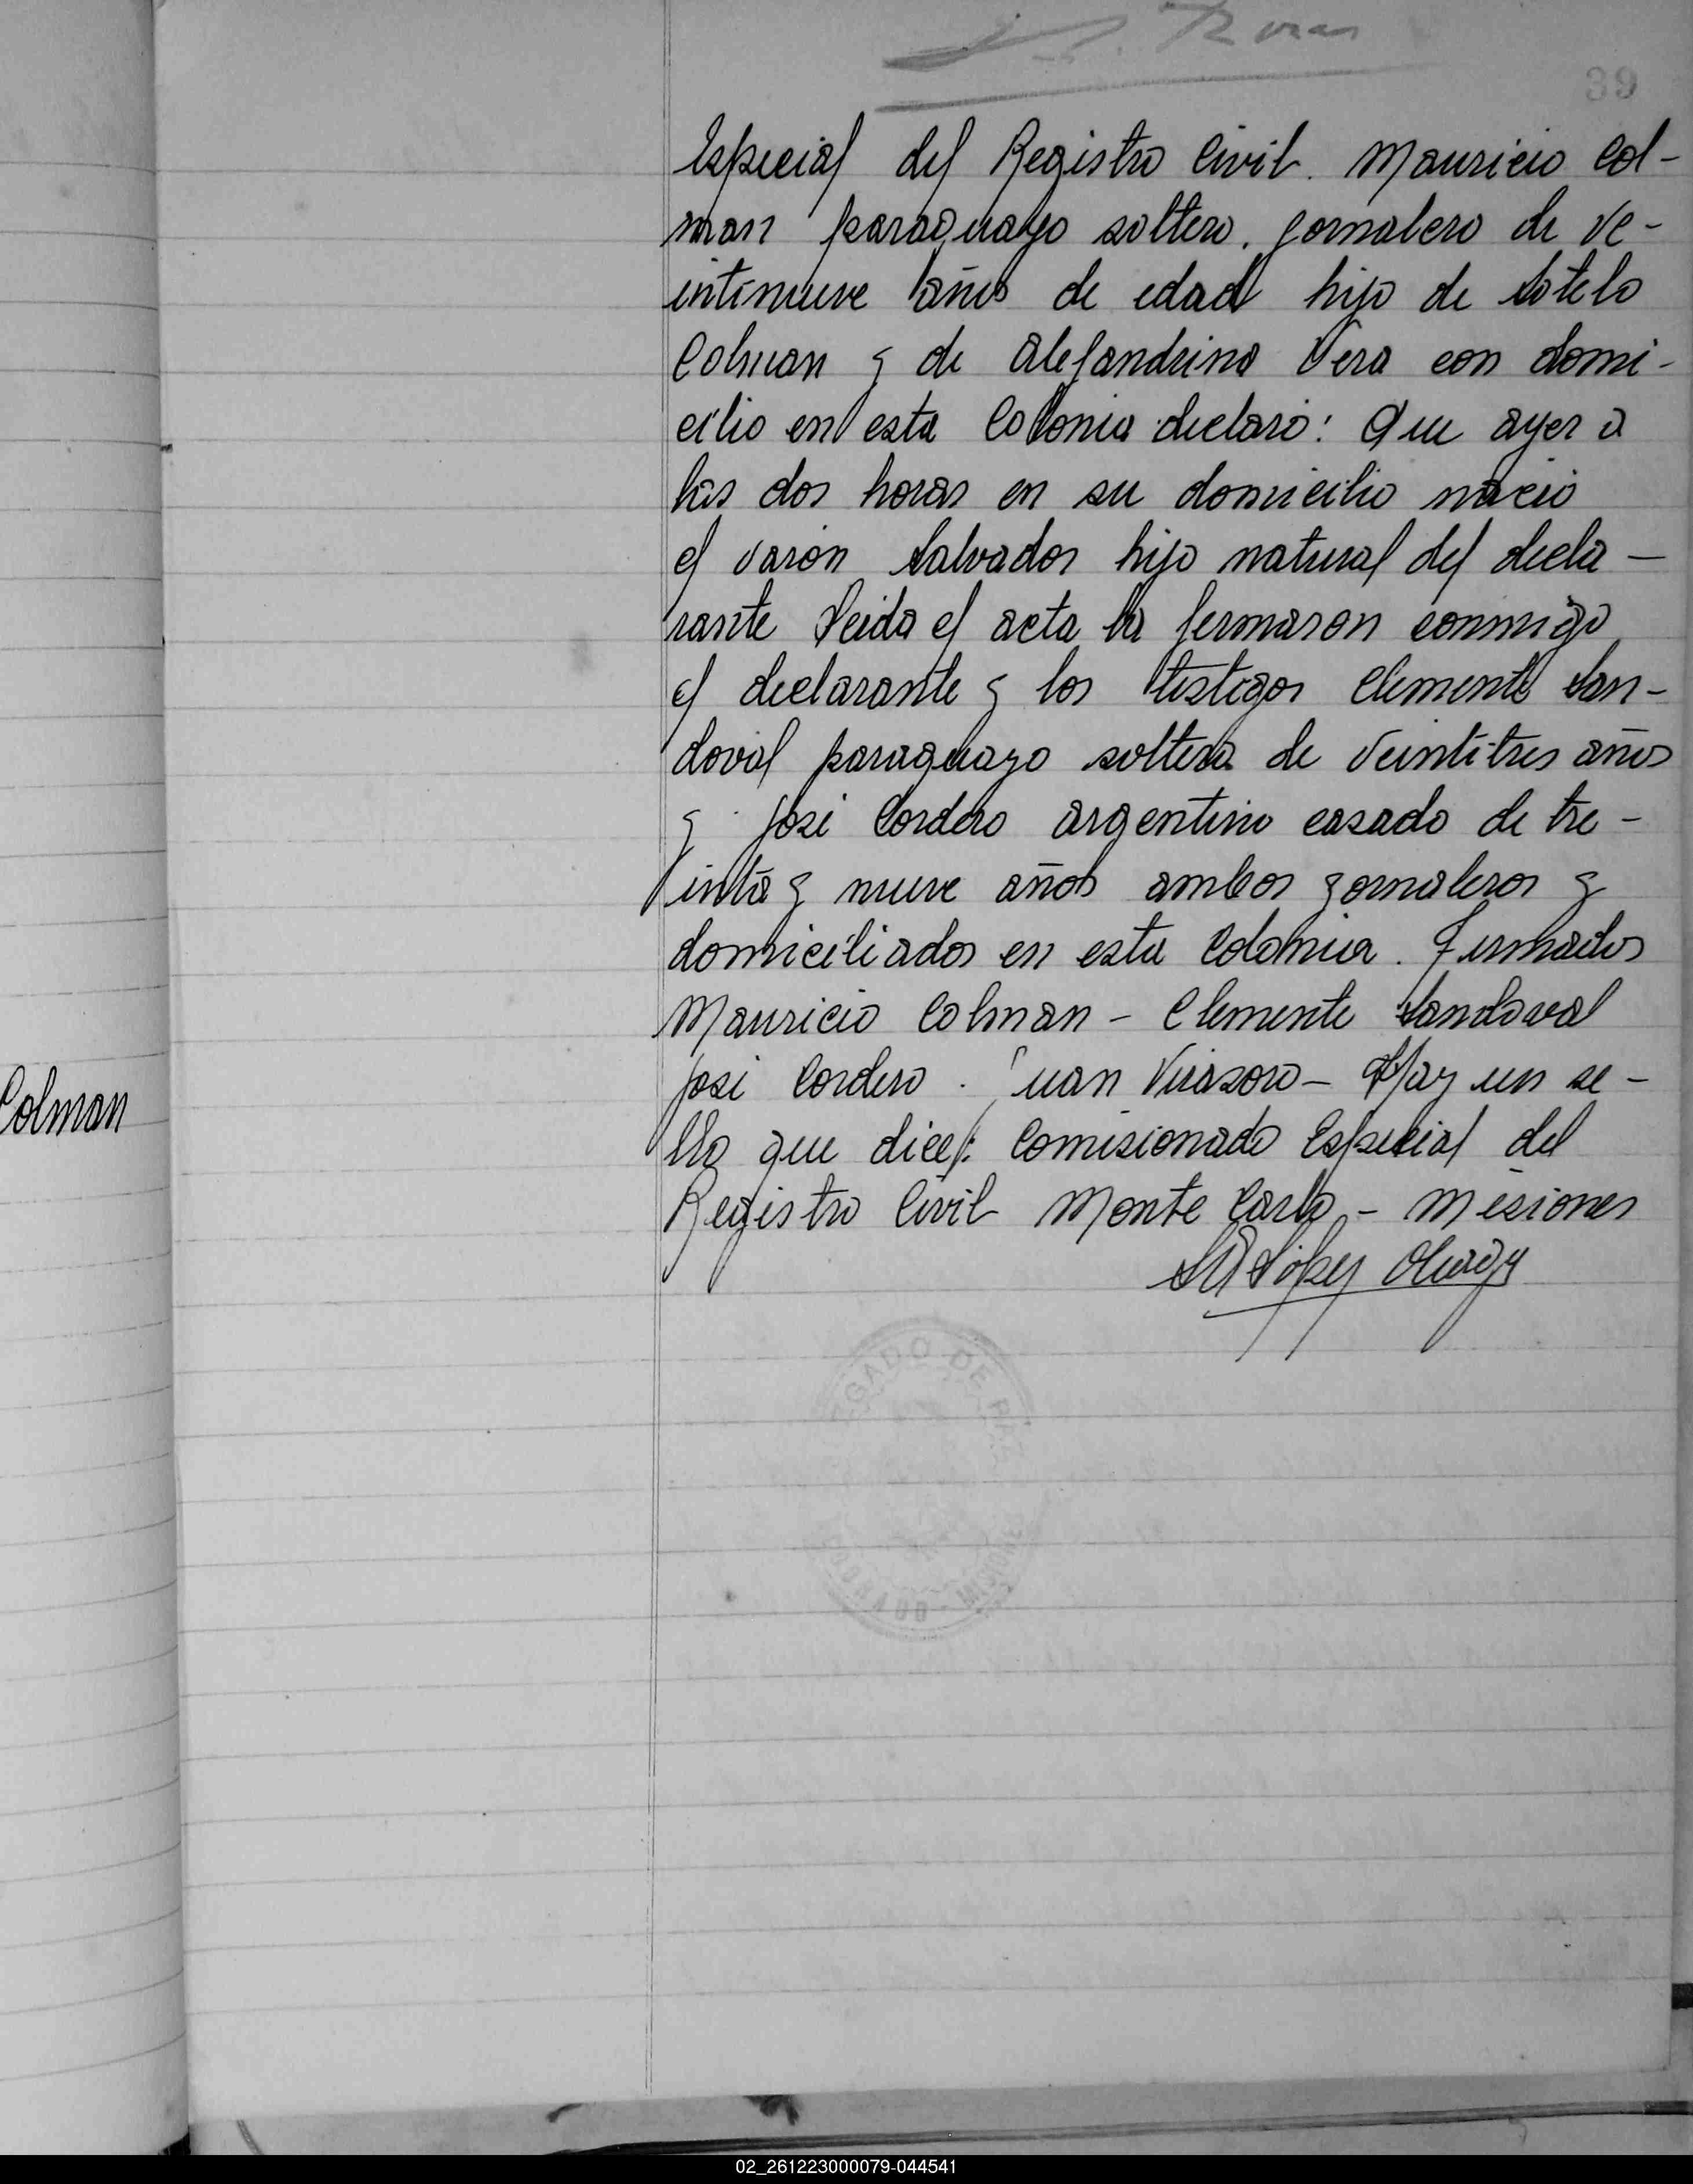 39
Especial del Registro Civil. Mauricio Col-
man paraguayo soltero. jornalero de ve-
intinueve años de edad hijo de Sotelo
Colman y de Alejandrina Vera con domi-
cilio en esta Colonia declaró: Que ayer a
las dos horas en su domicilio nació
el varón Salvador hijo natural del decla-
rante Leida el acta la fermaron conmigo
el declarante y los testigos Clemente San-
doval paraguayo soltero de veintitres años
y José Cordero argentino casado de tre-
inta y nueve años ambos jornaleros y
domiciliados en esta Colonia. Firmados
Mauricio Colman - Clemente Sandoval
José Cordero. Juan Virasoro - Hay un se-
Colman
llo que dice: Comisionado Especial del
Registro Civil Monte Carlo - Misiones
López
GADO DE PAZ